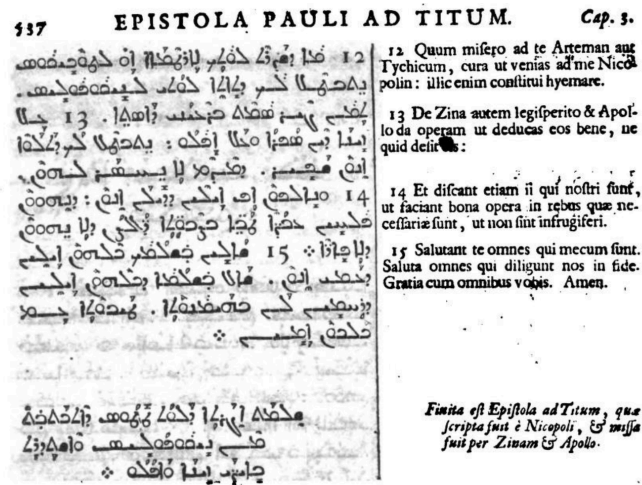 537 EPISTOLA PAULI AD TITUM. Cap. 3.
12 ܡܐ ܕܫܕܪܬ ܠܘܬܟ ܠܐܪܛܡܐ ܐܘ ܠܛܘܟܝܩܘܣ
ܢܬܒܛܠ ܠܟ ܕܬܐܬܐ ܠܘܬܝ ܠܢܝܩܘܦܘܠܝܣ.
ܬܡܢ ܓܝܪ ܣܡܬ ܒܪܥܝܢܝ ܕܐܣܬܐ. 13 ܥܠ
ܙܢܐ ܕܝܢ ܣܦܪܐ ܘܥܠ ܐܦܠܘ: ܢܬܒܛܠ ܠܟ ܕܬܠܘܐ
ܐܢܘܢ ܫܦܝܪ. ܕܡܕܡ ܠܐ ܢܚܣܪ ܠܗܘܢ.
14 ܘܢܐܠܦܘܢ ܐܦ ܐܝܠܝܢ ܕܕܝܠܢ ܐܢܘܢ: ܕܢܗܘܘܢ
ܦܠܚܝܢ ܥܒܕܐ ܛܒܐ ܒܨܒܘܬܐ ܕܐܠܨܢ ܕܠܐ ܢܗܘܘܢ
ܕܠܐ ܦܐܪܐ ܀ 15 ܫܐܠܝܢ ܒܫܠܡܟ ܟܠܗܘܢ ܐܝܠܝܢ
ܕܥܡܝ ܐܢܘܢ. ܫܐܠ ܒܫܠܡܐ ܕܟܠܗܘܢ ܐܝܠܝܢ
ܕܪܚܡܝܢ ܠܢ ܒܗܝܡܢܘܬܐ. ܛܝܒܘܬܐ ܥܡ
ܟܠܟܘܢ ܐܡܝܢ ܀
ܫܠܡܬ ܐܓܪܬܐ ܕܠܘܬ ܛܛܘܣ ܕܐܬܟܬܒܬ
ܡܢ ܢܝܩܘܦܘܠܝܣ ܘܐܫܬܕܪܬ
ܒܐܝܕܝ ܙܢܐ ܘܐܦܠܘ ܀
12 Quum misero ad te Arteman aut
Tychicum, cura ut venias ad me Nico
polin: illic enim constitui hyemare.
13 De Zina autem legisperito & Apol-
lo da operam ut deducas eos bene, ne
quid desit eis:
14 Et discant etiam ii qui nostri sunt,
ut faciant bona opera in rebus quæ ne-
cessariæ sunt, ut non sint infrugiferi.
15 Salutant te omnes qui mecum sunt.
Saluta omnes qui diligunt nos in fide.
Gratia cum omnibus vobis. Amen.
Finita est Epistola ad Titum, quæ
scripta fuit è Nicopoli, & missa
fuit per Zinam & Apollo.